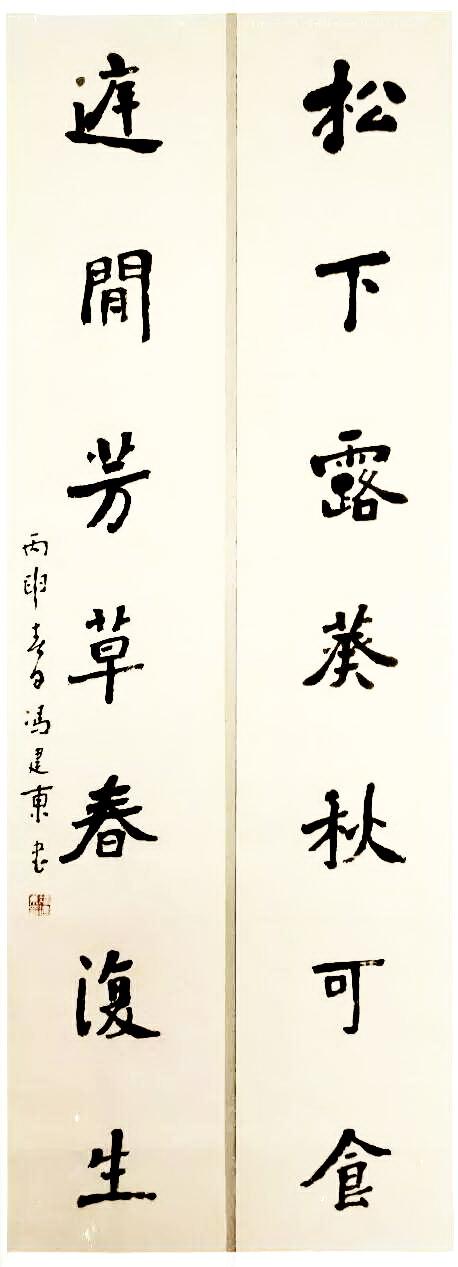 松下露葵秋可食
庭閒芳草春復生
丙申春日馮建東書